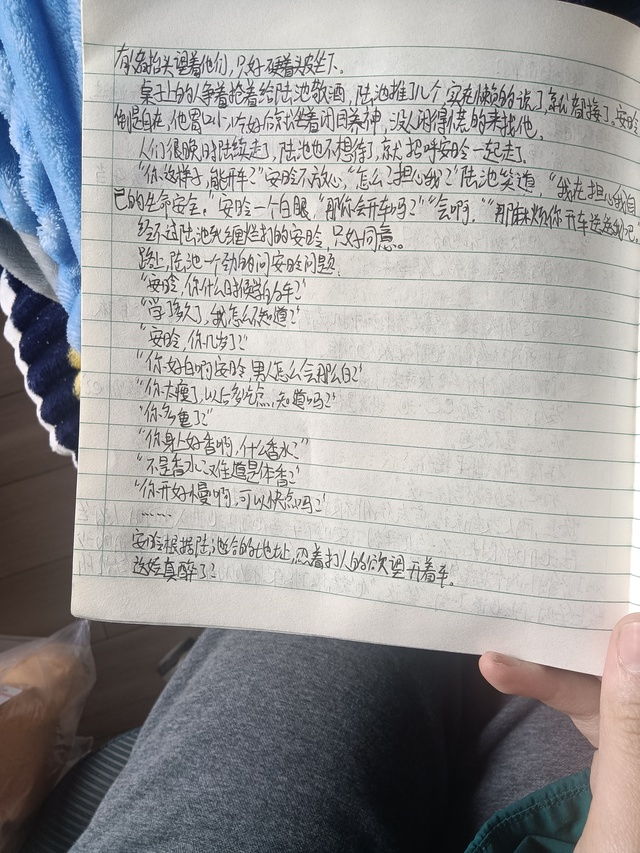 有些抬头望着他们，只好硬着头皮坐下。
桌子上的人争着抢着给陆池敬酒，陆池推了几个，实在懒负的说了，就都接了。安晗
倒是自在，他胃口小，吃好后就坐着闭目养神，没人闲得慌的来找他。
人们很晚时陆续走了，陆池也不想待了，就招呼安晗一起走了。
“你这样子，能开车？”安晗不放心，“怎么？担心我？”陆池笑道，“我在担心我自
己的生命安全。”安晗一个白眼，“那你会开车吗？”“会啊。”“那麻烦你开车送送我吧。”
经不过陆池死缠烂打的安晗，只好同意。
路上，陆池一个劲的问安晗问题。
“安晗，你什么时候学的车？”
“学了多久了，我怎么不知道？”
“安晗，你几岁了？”
“你好白啊安晗，男人怎么会那么白？”
“你太瘦了，以后多吃点，知道吗？”
“你多重了？”
“你身上好香啊，什么香水？”
“不是香水？难道是体香？”
“你开好慢啊，可以快点吗？”
……
安晗根据陆池给的地址，忍着打人的欲望开着车。
这怂真醉了？